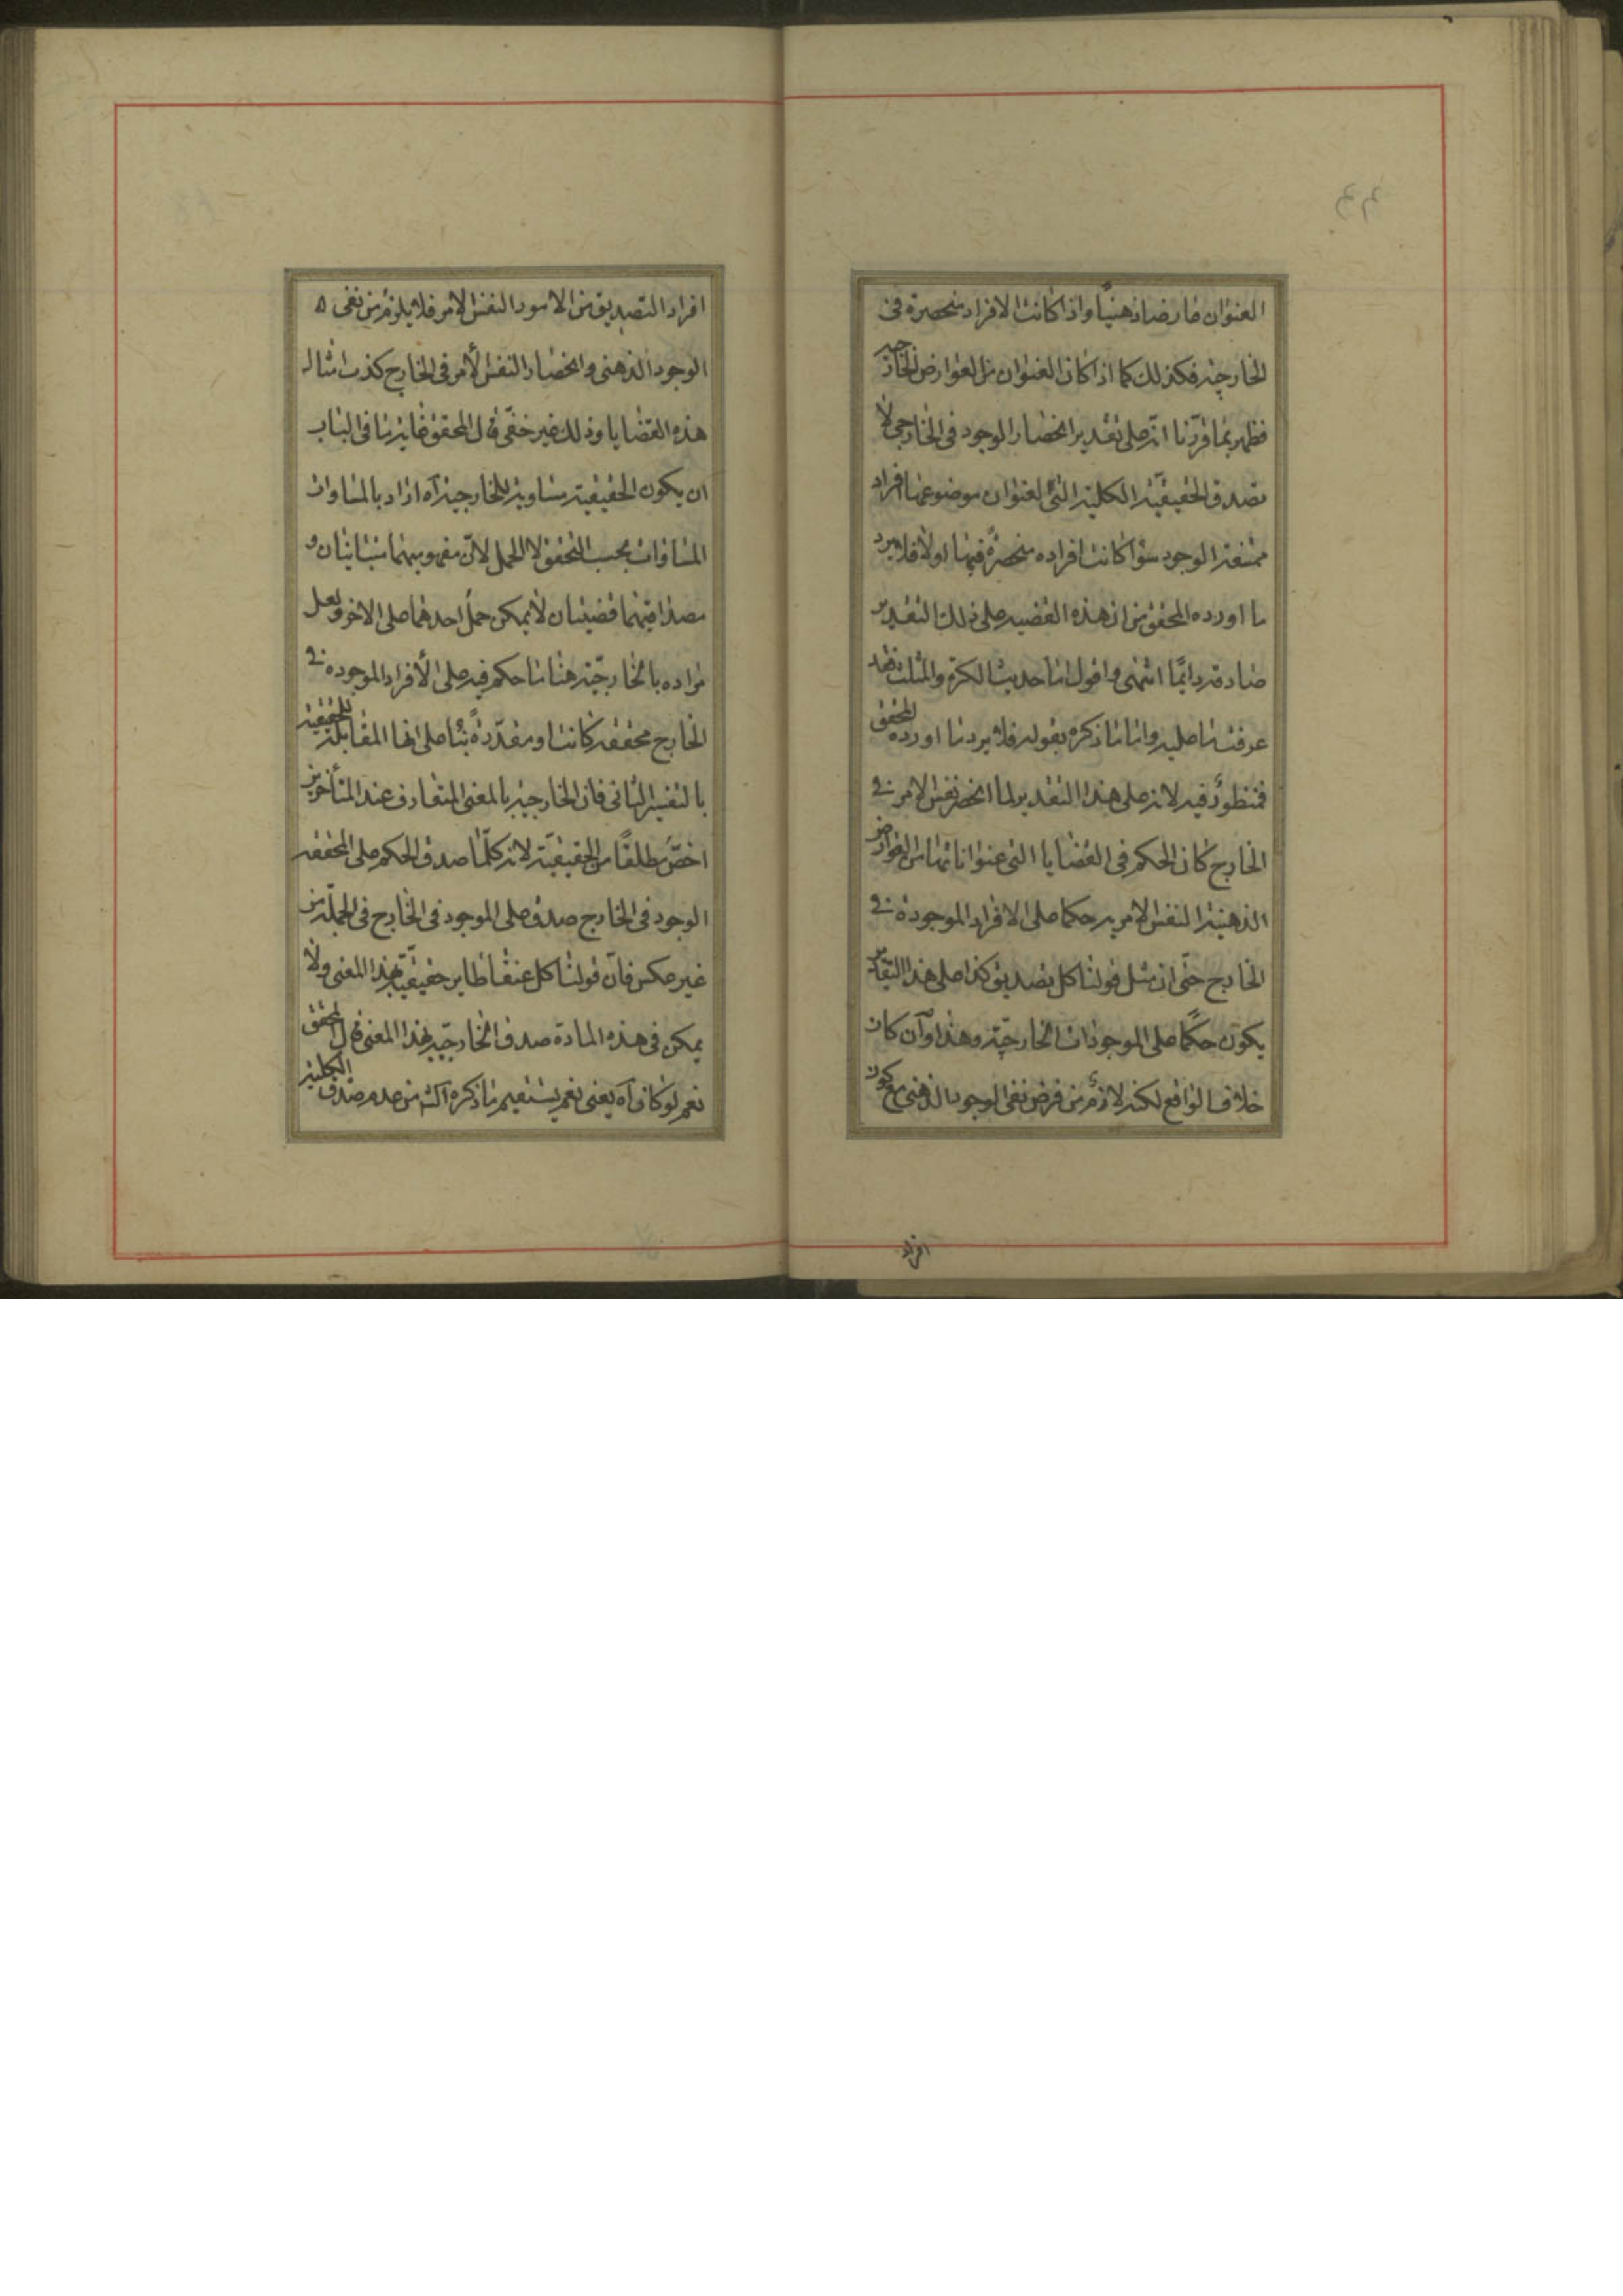 العنوان عارضا ذهنيا واذا كانت الافراد منحصرة فى
الخارجية فكذلك كما اذا كان العنوان من العوارض الخارجية
فظهر بما قررنا انه على تقدير انحصار الوجود فى الخارجى لا
تصدق الحقيقية الكلية التى لعنوان موضوعها افراد
ممتنعة الوجود سوا كانت افراده منحصرة فيها او لا فلا يرد
ما اورده المحقق من ان هذه القضيه على ذلك التقدير
صادقة دايما انتهى واقول اما حديث الكرة والمثلث فقد
عرفت ما عليه واما ما ذكره بقوله فلا يرد ما اورده المحقق
فمنظور فيه لانه على هذا التقدير لما انحصر نفس الامر فى
الخارج كان الحكم فى القضايا التى عنواناتها من العوارض
الذهنية النفس الامرية حكما على الافراد الموجودة فى
الخارج حتى ان مثل قولنا كل تصديق كذا على هذا التقدير
يكون حكما على الموجودات الخارجية وهذا وان كان
خلاف الواقع لكنه لازم من فرض نفى الوجود الذهنى مع كون
افراد
افراد التصديق من الامور النفس الامر فلا يلزم من نفى ه
الوجود الذهنى وانحصار النفس الأمر فى الخارج كذب امثال
هذه القضايا وذلك غير خفى قال المحقق غاية ما فى الباب
ان يكون الحقيقية مساوية للخارجية آه اراد بالمساواة
المساواة بحسب التحقق لا الحمل لان مفهوميهما متباينان و
مصداقيهما قضيتان لا يمكن حمل احدهما على الاخر ولعل
مراده بالخارجية هنا ما حكم فيه على الأفراد الموجوده فى
الخارج محققه كانت او مقدرة بنا على انها المقابلة للحقيقية
بالتفسير الثانى فان الخارجية بالمعنى المتعارف عند المتأخرين
اخص مطلقا من الحقيقية لانه كلما صدق الحكم على المحققه
الوجود فى الخارج صدق على الموجود فى الخارج فى الجملة من
غير عكس فان قولنا كل عنقا طاير حقيقية بهذا المعنى ولا
يمكن فى هذه المادة صدق الخارجية بهذا المعنى قال المحقق
نعم لو كان آه يعنى نعم يستقيم ما ذكره من عدم صدق الكلية